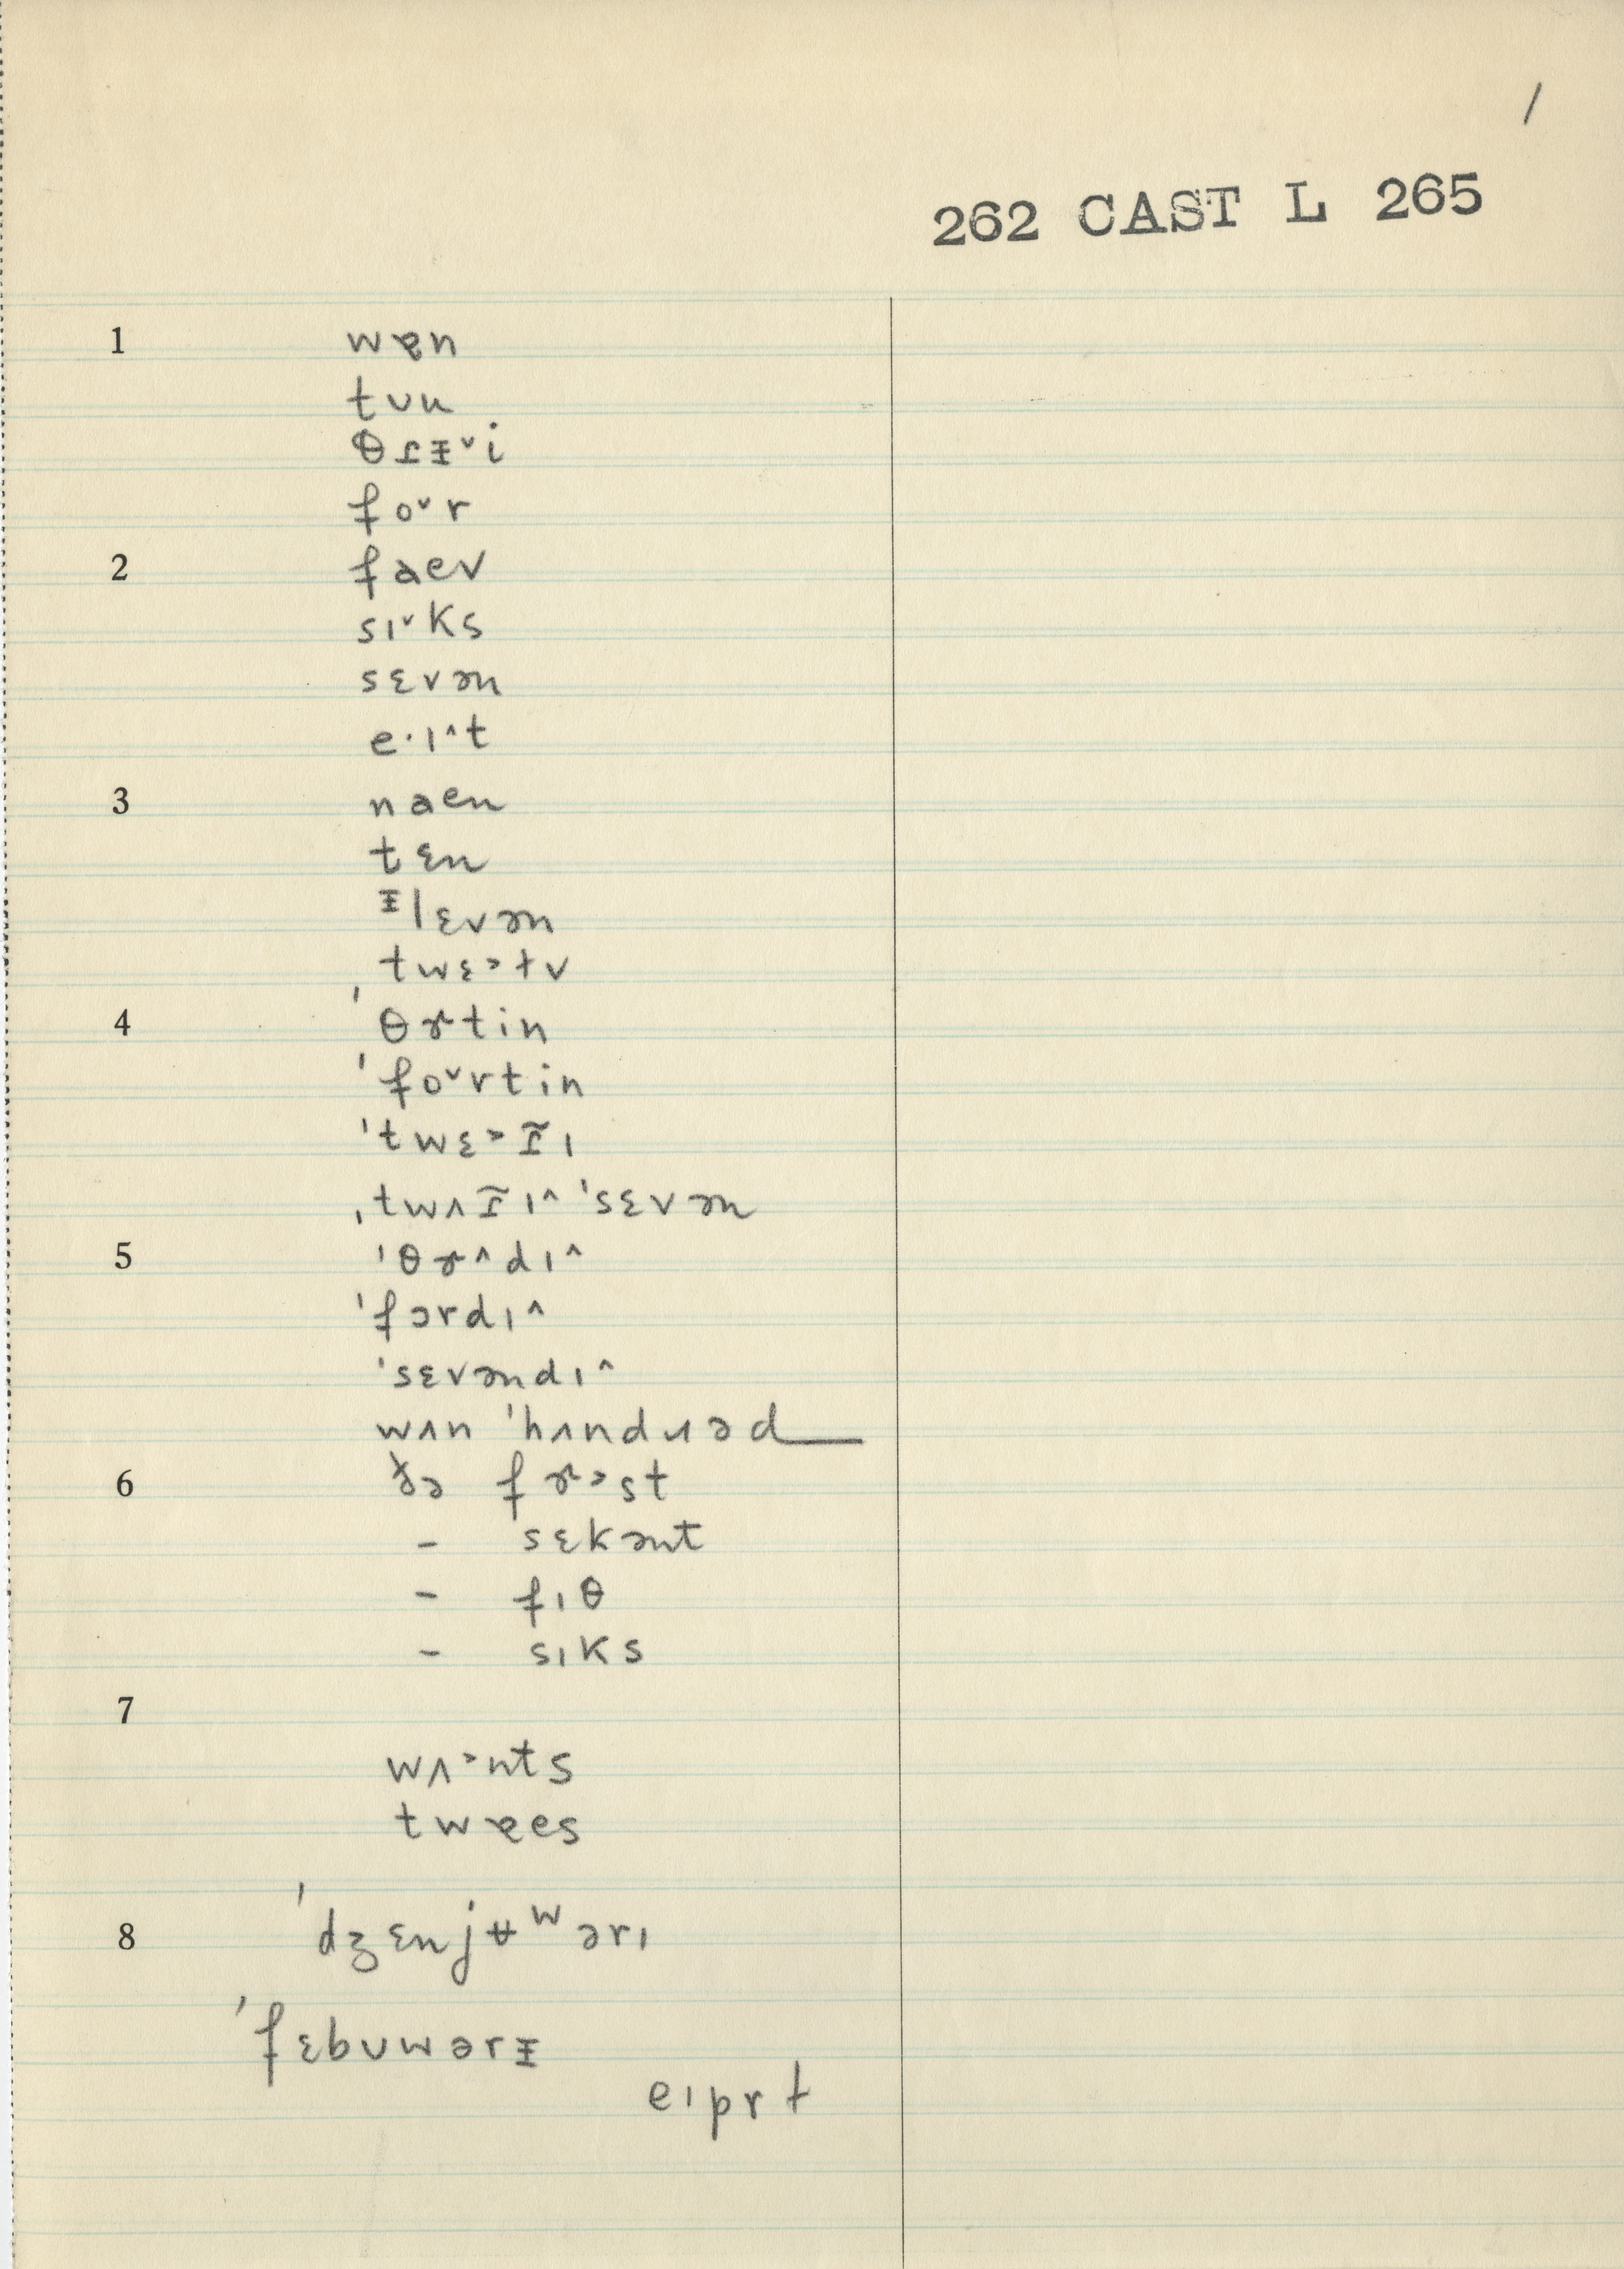 /
262 CAST L 265
1 wɐn
tʊu
θɹᵻ˅i
fo˅r
2 faev
sɪ˅ks
sɛvən
e·ɪ^t
3 naen
tɛn
ᵻlɛvən
twɛ˃ɫv
4 ˈθɚtin
ˈfo˅rtin
ˌtwʌɪ^ ˈsɛvən
5 ˈθɚ^dɪ^
ˈfɔrdɪ^
ˈsɛvəndɪ^
wʌn ˈhʌndɹəd
6 ðə fɚ˃st
– sɛkənt
– fɪθ
– sɪks
7
wʌ˃nts
twɐes
8 ˈdʒɛnjʉʷərɪ
ˈfɛbʊwərᵻ
eɪprɫ